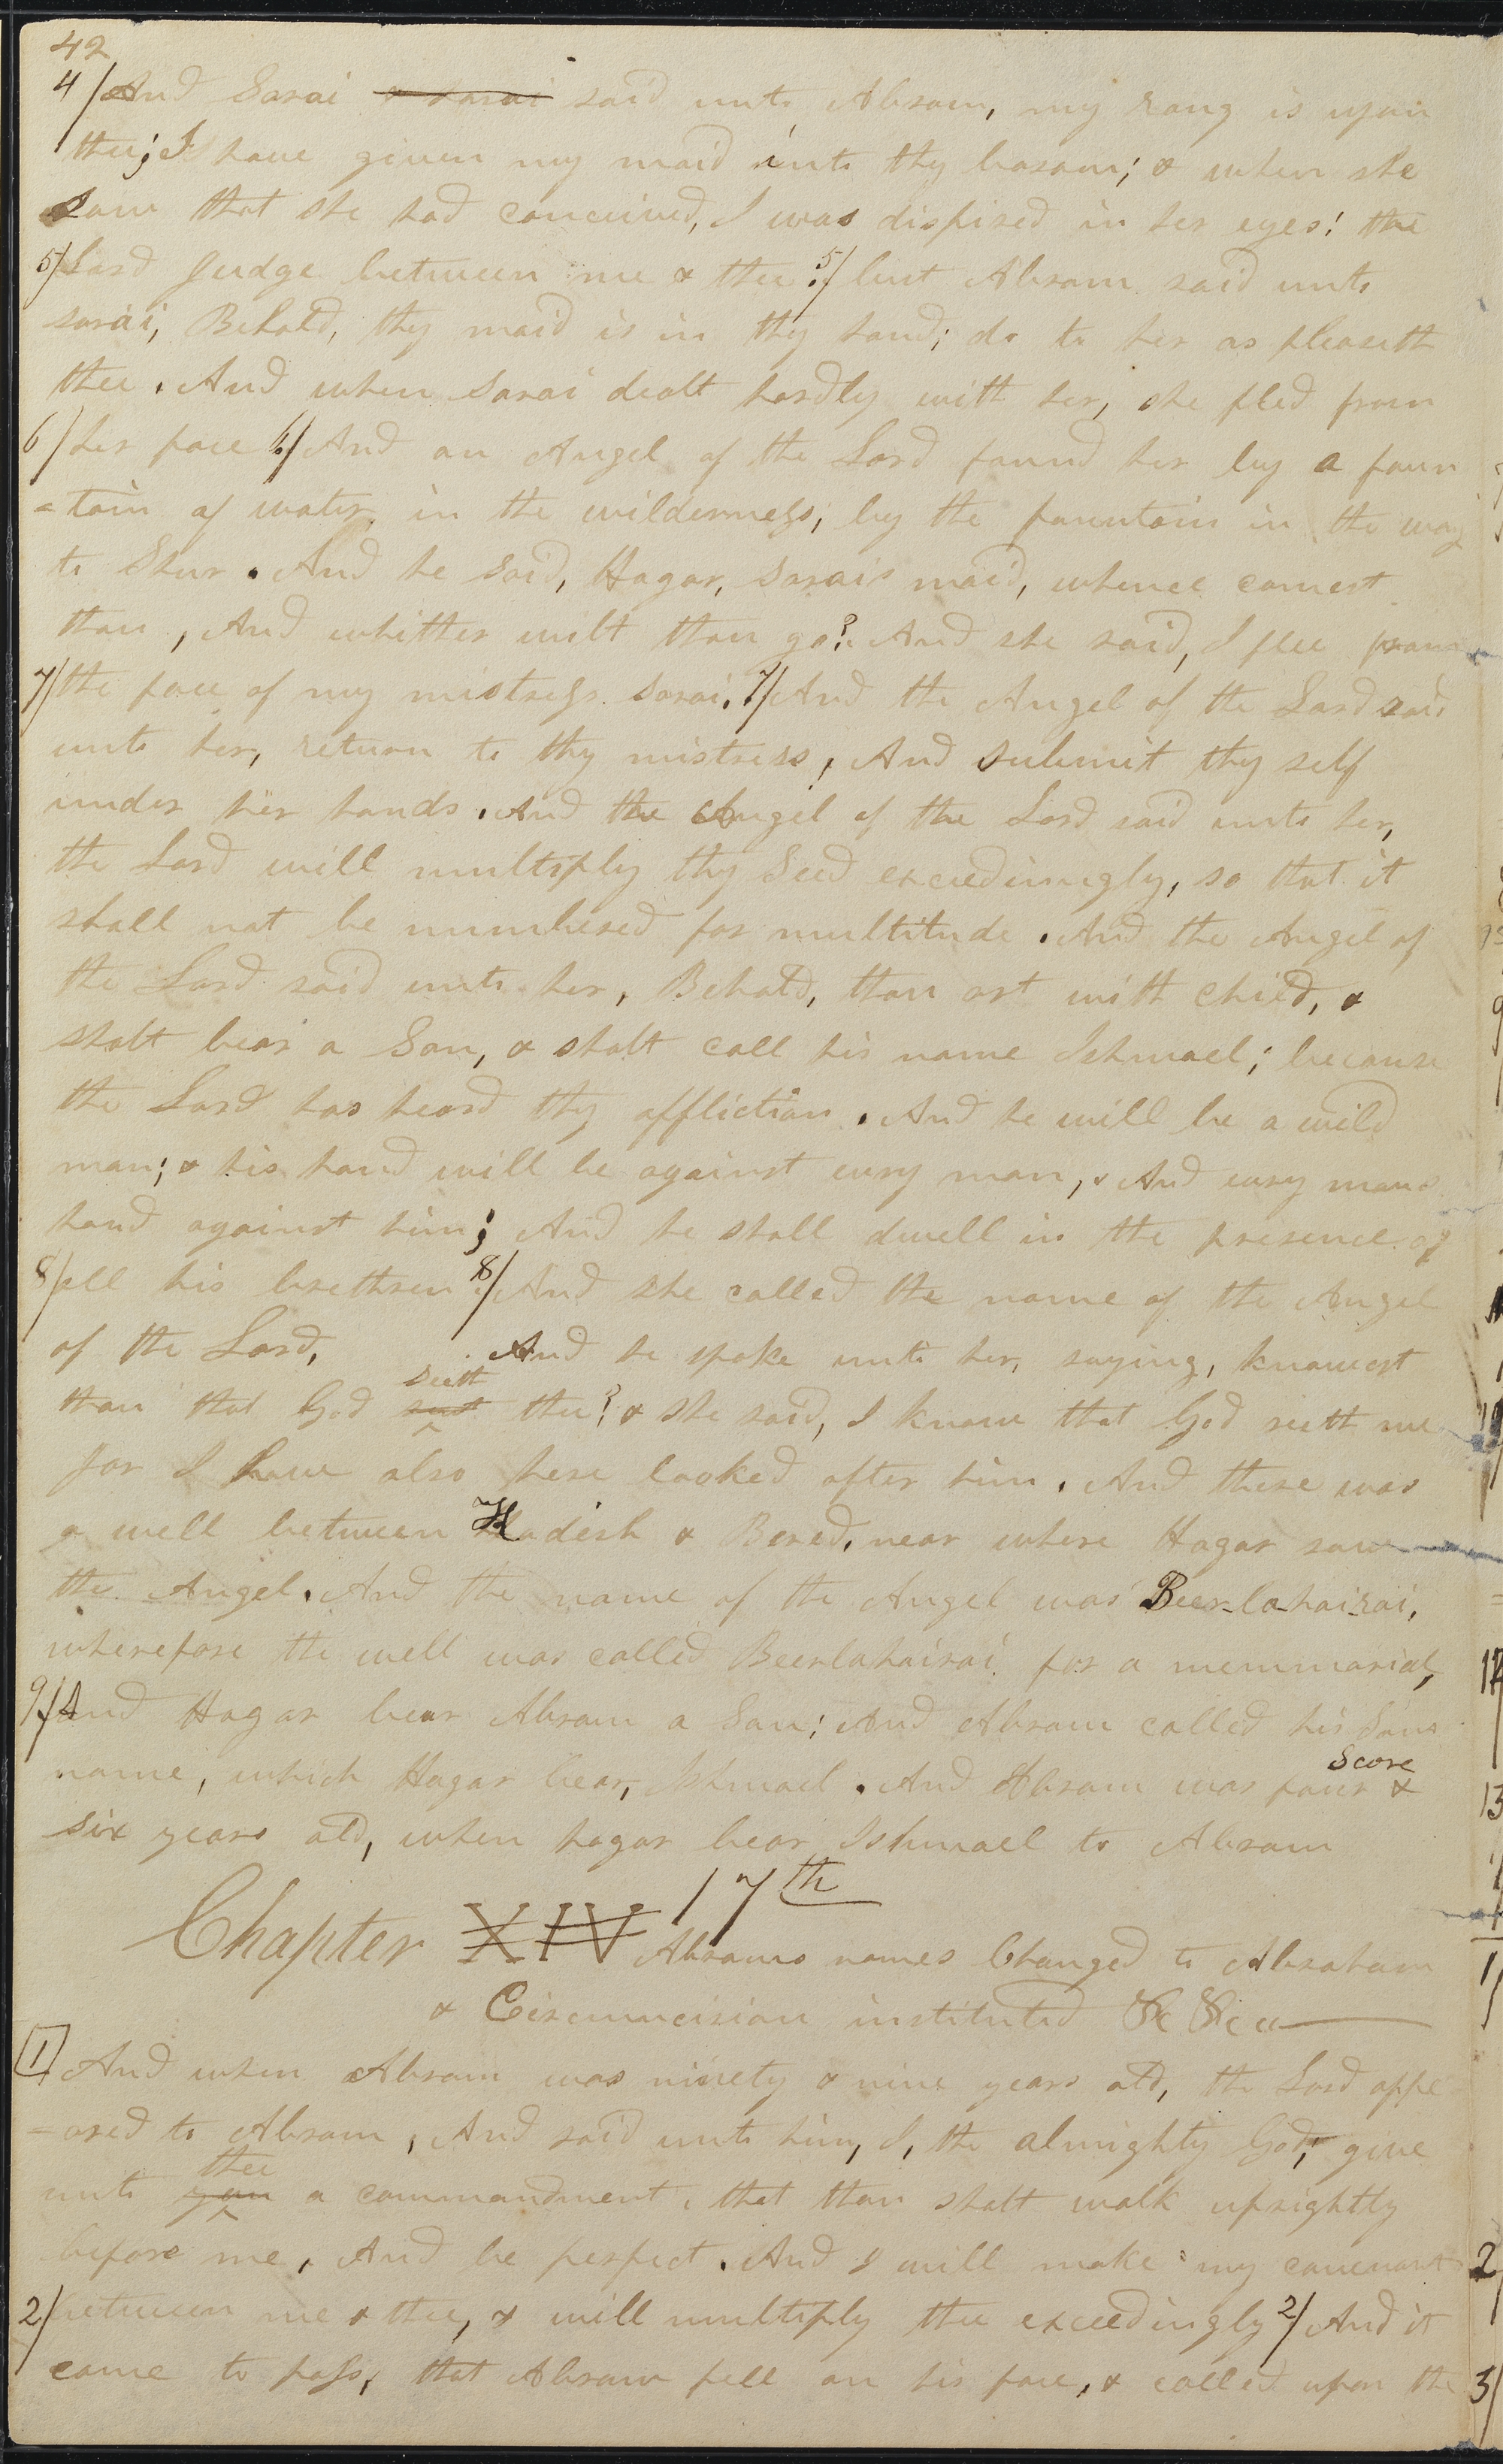 42
4/ And Sarai & sarai said unto Abram, my rong is upon
thee; I have given my maid into thy bosom; & when she
saw that she had conceived, I was dispised in her eyes: the
5/ Lord Judge between me & thee. 5/ but Abram said unto
sarai, Behold, thy maid is in thy hand; do to her as pleaseth
thee. And when Sarai dealt hardly with her, she fled from
6/ her face 6/ And an Angel of the Lord found her by a foun
=tain of water in the wilderness; by the fountain in the way
to Shur. And he said, Hagar, Sarais maid, whence comest
thou, And whither wilt thou go? And she said, I flee from
7/ the face of my mistress Sarai. 7/ And the Angel of the Lord said
unto her, return to thy mistress, And submit thy self
under her hands. And the Angel of the Lord said unto her,
the Lord will multiply thy Seed exceedinngly, so that it
shall not be numbered for multitude. And the Angel of
the Lord said unto her, Behold, thou art with child, &
shalt bear a Son, & shalt call his name Ishmael; because
the Lord has heard thy affliction. And he will be a wild
man; & his hand will be against evry man, & And evry mans
hand against him; And he shall dwell in the presence of
8/ all his brethren. 8/ And she called the name of the Angel
of the Lord, And he spoke unto her, saying, knowest
seeth
thou that God seest thee? & she said, I know that God seeth me
for I have also here looked after him. And there was
a well between Kadesh & Bered, near where Hagar saw
the Angel. And the name of the Angel was Beer-la-hairoi,
wherefore the well was called Beerlahairoi for a memmorial,
9/ And Hagar bear Abram a Son; And Abram called his Sons
Score
name, which Hagar bear, Ishmael. And Abram was four &
six years old, when hagar bear Ishmael to Abram
17th
Chapter XIV Abrams names Changed to Abraham
& Circumcision instituted &c &c
1 And when Abram was ninety & nine years old, the Lord appe
=ared to Abram, And said unto him, I, the almighty God, give
thee
unto you a commandment, that thou shalt walk uprightly
before me, And be perfect. And I will make my covenant
2/ between me & thee, & will multiply thee exceedingly 2/ And it
came to pass, that Abram fell on his face, & called upon the